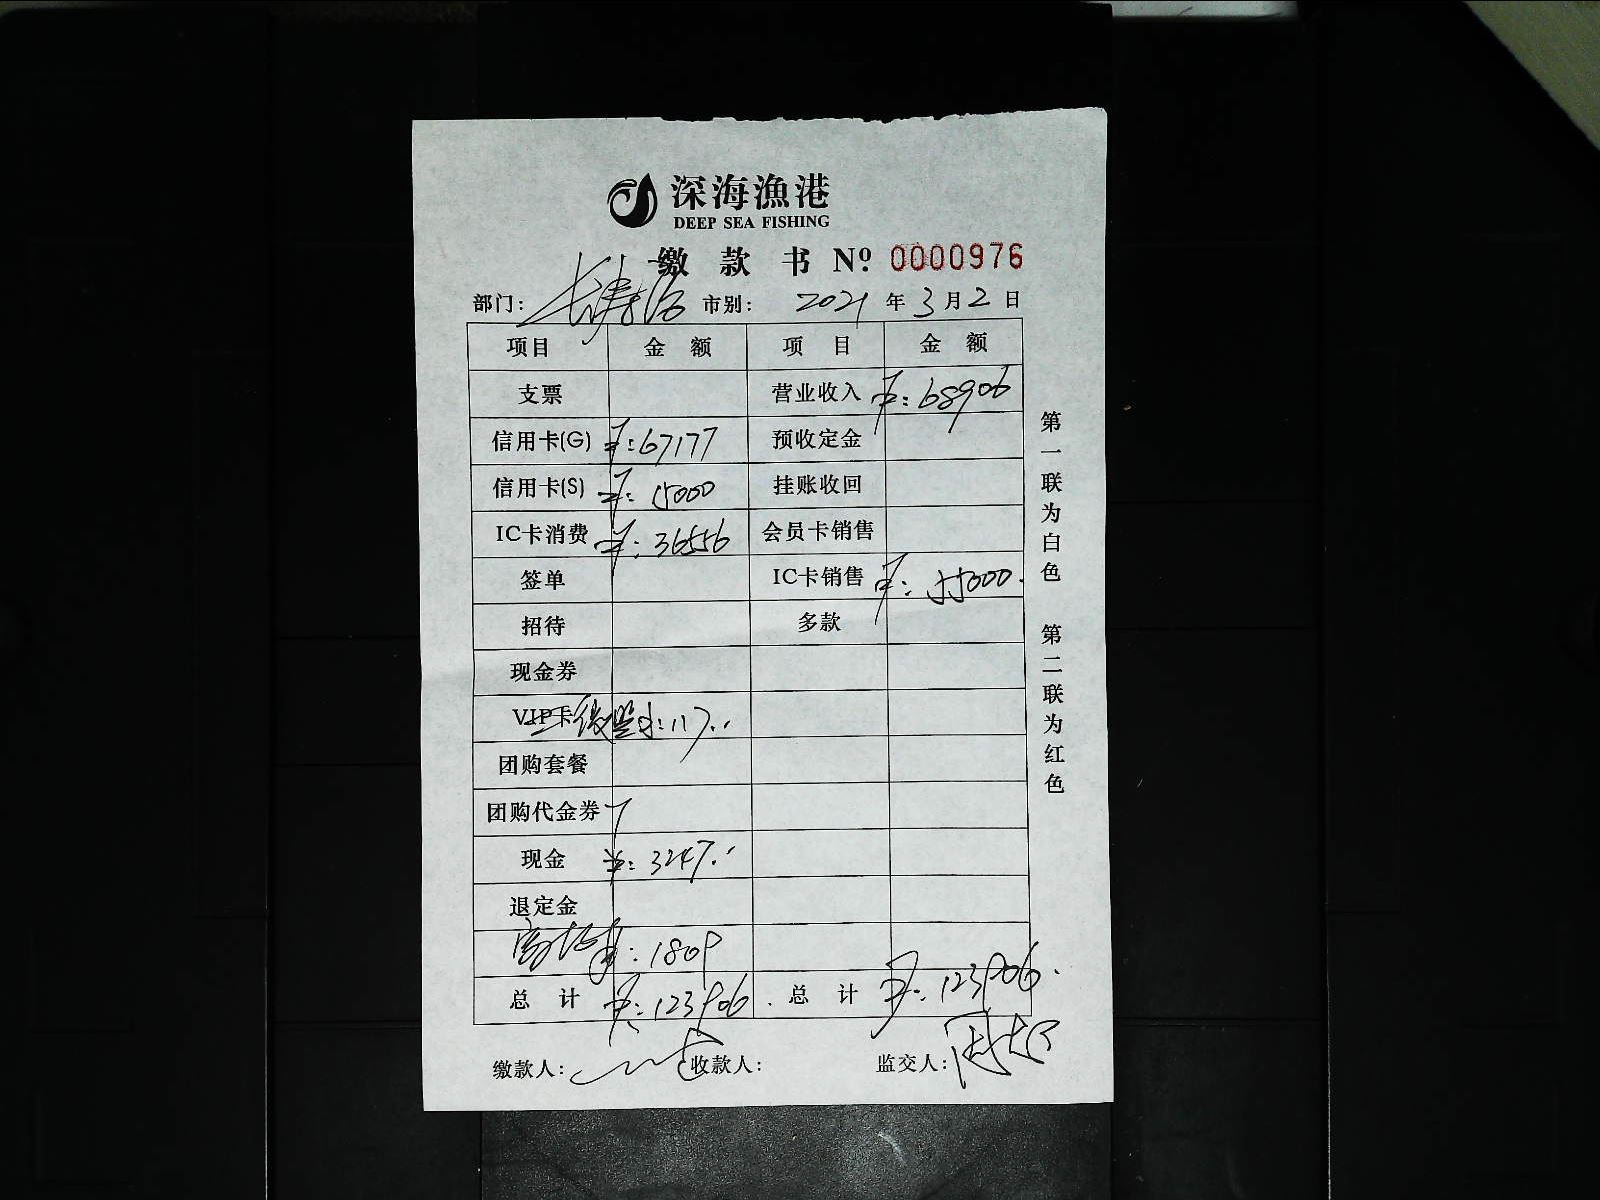 深海渔港
DEEP SEA FISHING
缴款书 Nº: 0000976
部门: 市别: 2021年3月2日
项目 金额 项目 金额
支票 营业收入 ¥:68906
信用卡(G) ¥:67177 预收定金
信用卡(S) ¥:15000 挂账收回
IC卡消费 ¥:36556 会员卡销售
签单 IC卡销售 ¥:55000.
招待 多款
现金券
VIP卡 微盟 :117..
团购套餐
团购代金券
现金 ¥:3247..
退定金
:1809
总计 ¥:123906. 总计 ¥:123906.
缴款人: 收款人: 监交人:
第一联为白色 第二联为红色